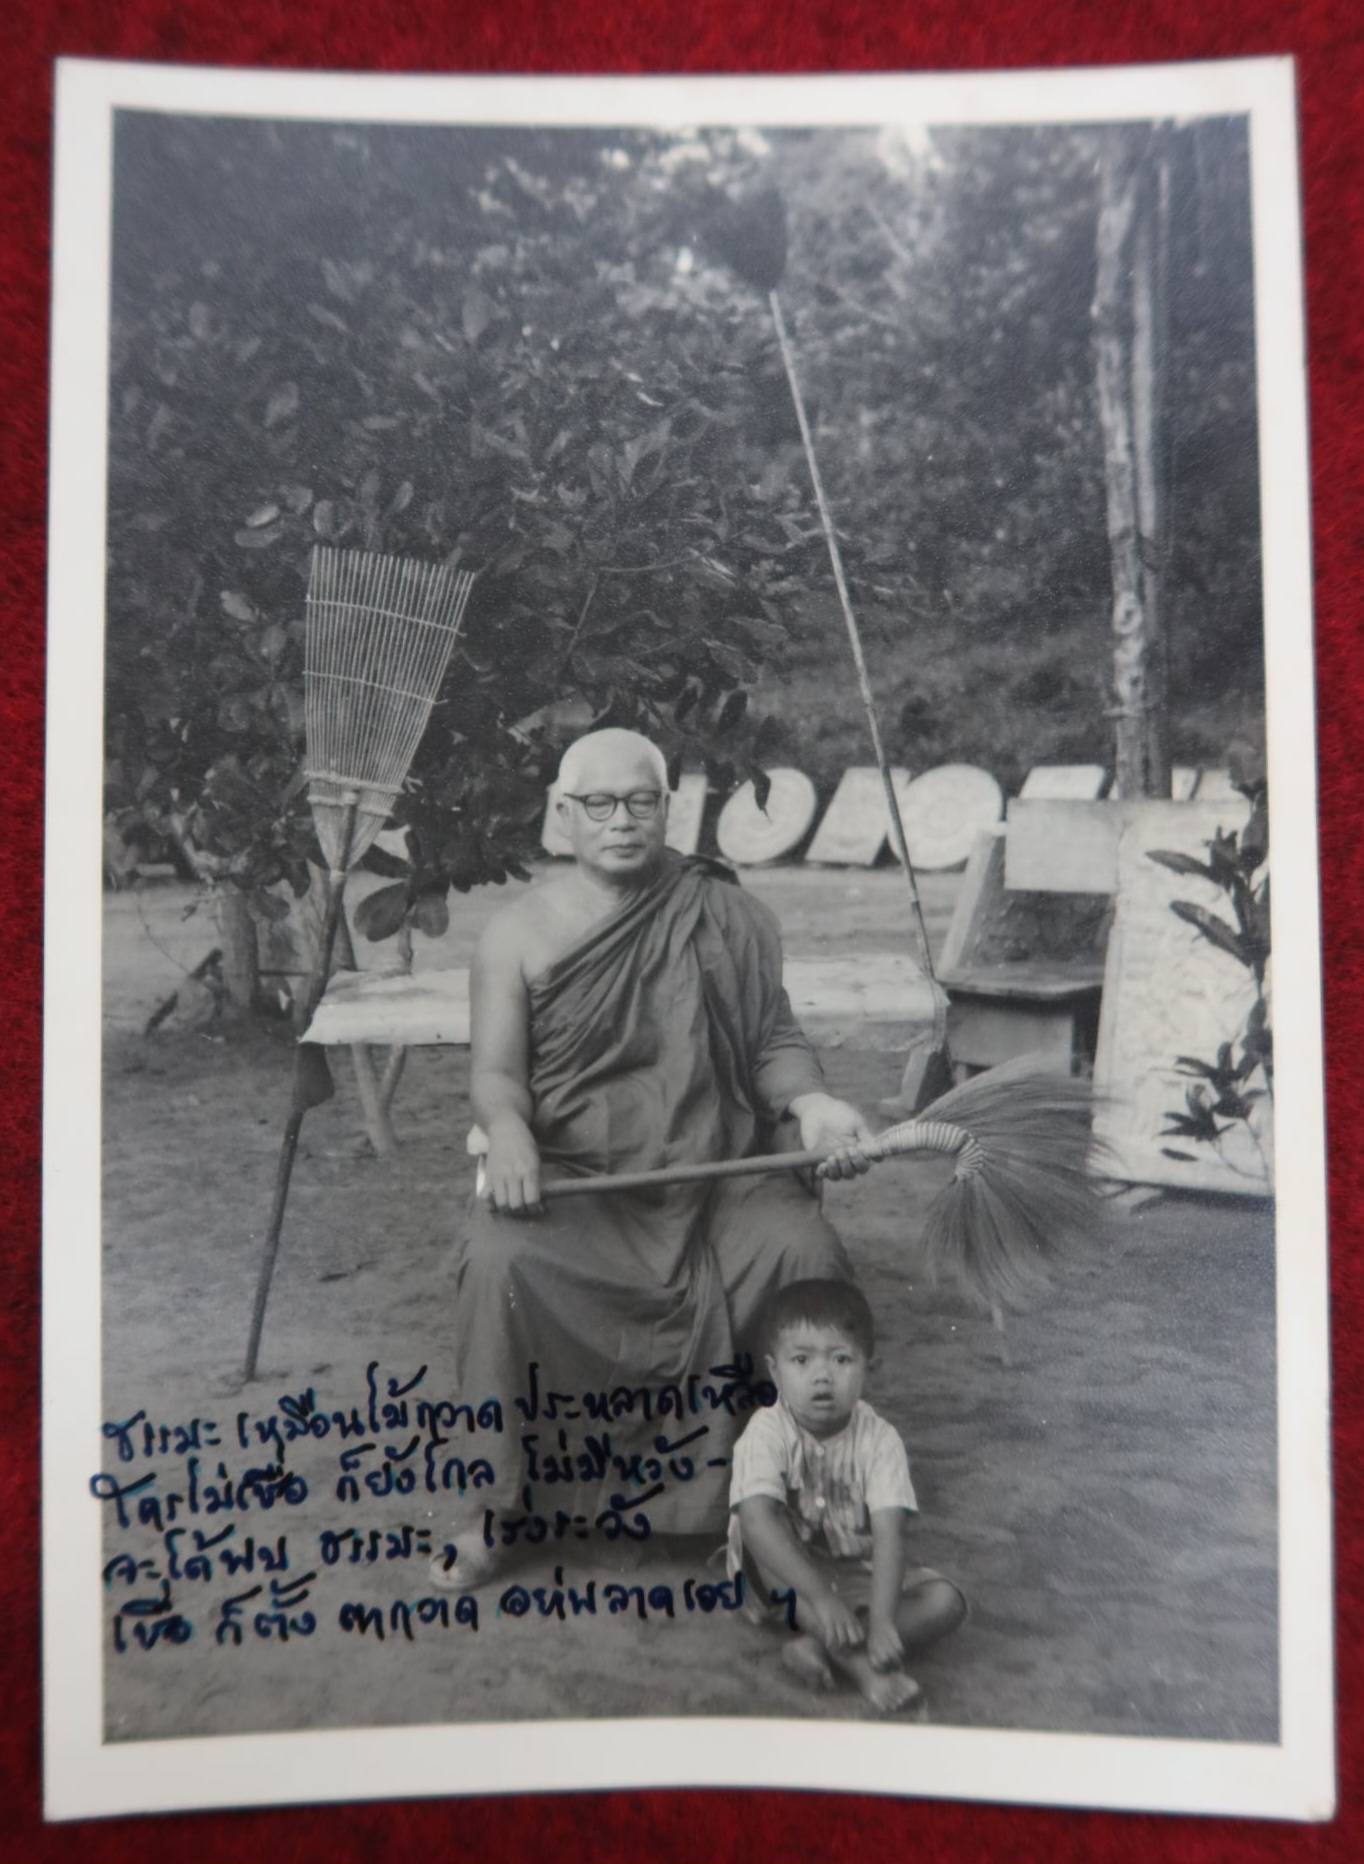 ธรรมะ เหมือนไม้กวาด ประหลาดเหลือ
ใครไม่เชื่อ ก็ยังไกล ไม่มีหวัง-
จะได้พบ ธรรมะ, เร่งระวัง
เชื่อ ก็ตั้ง ตากวาด อย่พลาดเอย ฯ